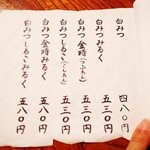 白みつ 四八〇円
白みつみるく 五三〇円
白みつ金時（つぶあん） 五三〇円
白みつしるこ（こしあん） 五三〇円
白みつ金時みるく 五八〇円
白みつしるこみるく 五八〇円